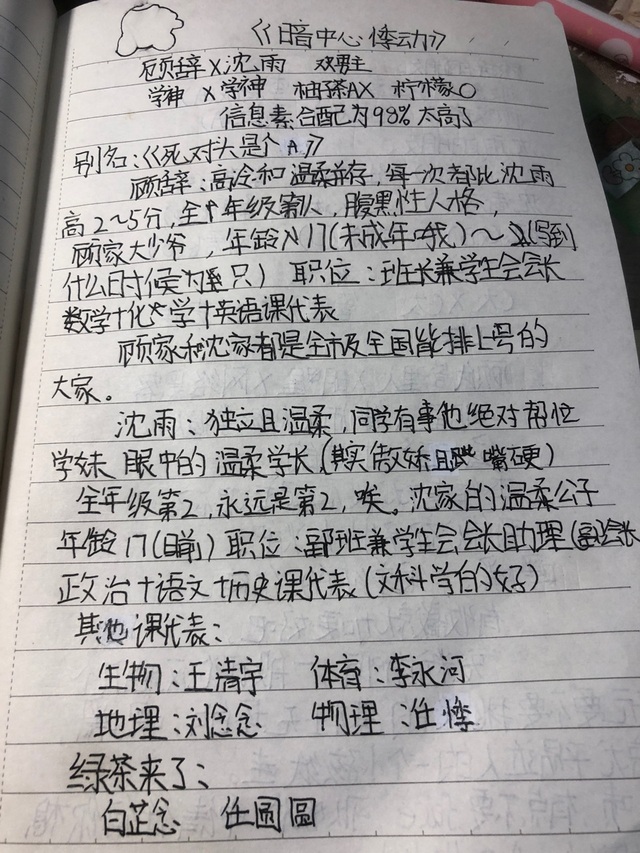 《暗中心悸动》
顾辞X沈雨 双男主
学神 X学神 柚茶AX 柠檬O
信息素合配为98% 太高了
别名:《死对头是个A》
顾辞:高冷和温柔并存,每一次都比沈雨
高2~5分,全个年级第1人,腹黑性人格,
顾家大少爷,年龄 17(未成年哦)~(写到
什么日寸候为只) 职位:班长兼学生会会长
数学十化学十英语课代表
顾家和沈家都是全市及全国能排上号的
大家。
沈雨:独立且温柔,同学有事他绝对帮忙
学妹 眼中的 温柔学长(其实傲娇且嘴硬)
全年级第2,永远是第2,唉。沈家的温柔公子
年龄 17(目前) 职位:副班兼学生会会长助理(副会长
政治十语文十历史课代表(文科学的好)
其他课代表:
生物:王清宇 体育:李永河
地理:刘念念 物理:任悸
绿茶来了:
白芷念 任圆圆